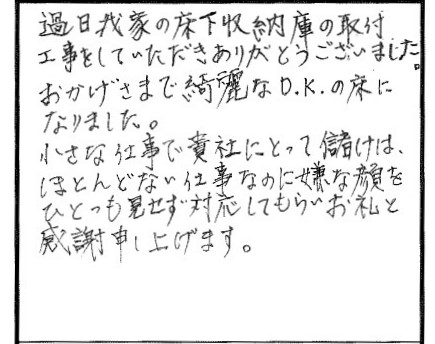 過日我家の床下収納庫の取付
工事をしていただきありがとうございました。
おかげさまで綺麗なD.K.の床に
なりました。
小さな仕事で貴社にとって儲けは、
ほとんどない仕事なのに嫌な顔を
ひとつも見せず対応してもらいお礼と
感謝申し上げます。